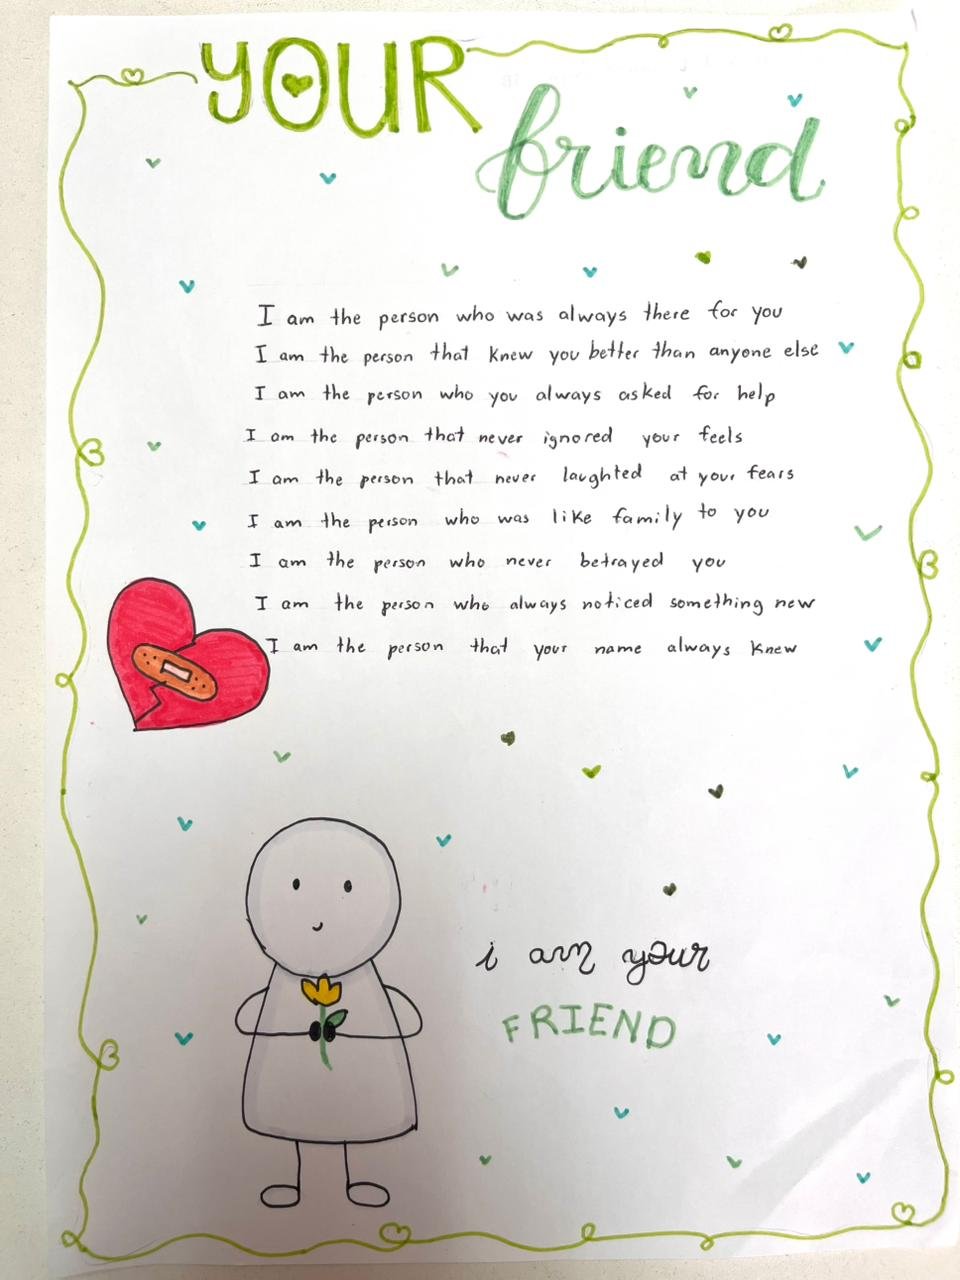 YOUR
friend
I am the person who was always there for you
I am the person that knew you better than anyone else
I am the person who you always asked for help
I am the person that never ignored your feels
I am the person that never laughted at your fears
I am the person who was like family to you
I am the person who never betrayed you
I am the person who always noticed something new
I am the person that your name always knew
i am your
FRIEND